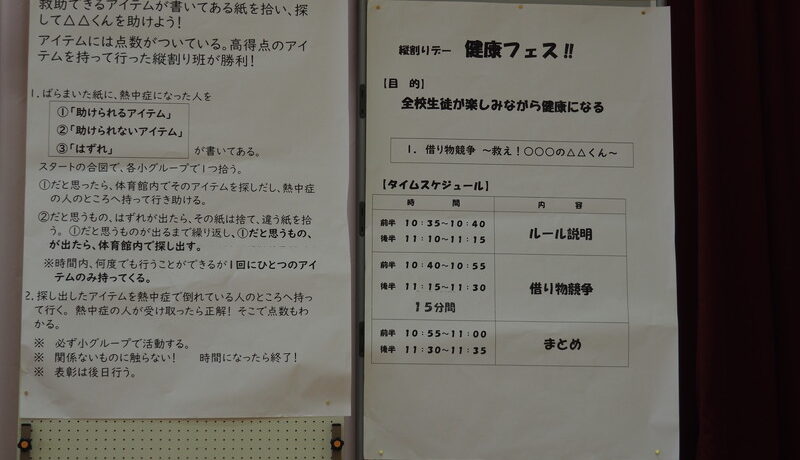 救助できるアイテムが書いてある紙を拾い、探
して△△くんを助けよう!
アイテムには点数がついている。高得点のアイ
テムを持って行った縦割り班が勝利!
1. ばらまいた紙に、熱中症になった人を
①「助けられるアイテム」
②「助けられないアイテム」
③「はずれ」
が書いてある。
スタートの合図で、各小グループで1つ拾う。
①だと思ったら、体育館内でそのアイテムを探しだし、熱中症
の人のところへ持って行き助ける。
②だと思うもの、はずれが出たら、その紙は捨て、違う紙を拾
う。①だと思うものが出るまで繰り返し、①だと思うもの、
が出たら、体育館内で探し出す。
※時間内、何度でも行うことができるが1回にひとつのアイ
テムのみ持ってくる。
2. 探し出したアイテムを熱中症で倒れている人のところへ持っ
て行く。熱中症の人が受け取ったら正解! そこで点数もわ
かる。
※ 必ず小グループで活動する。
※ 関係ないものに触らない! 時間になったら終了!
※ 表彰は後日行う。
縦割りデー 健康フェス!!
【目 的】
全校生徒が楽しみながら健康になる
1. 借り物競争 ~救え!○○○の△△くん~
【タイムスケジュール】
時 間 内 容
前半 10:35~10:40
後半 11:10~11:15
ルール説明
前半 10:40~10:55
後半 11:15~11:30
15分間
借り物競争
前半 10:55~11:00
後半 11:30~11:35
まとめ